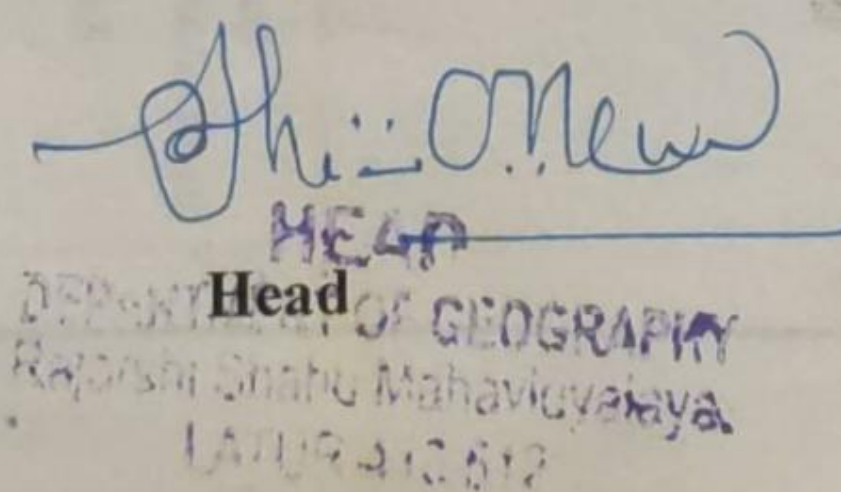 HEAD
Head
DEPARTMENT OF GEOGRAPHY
Rajarshi Shahu Mahavidyalaya,
LATUR-413 512